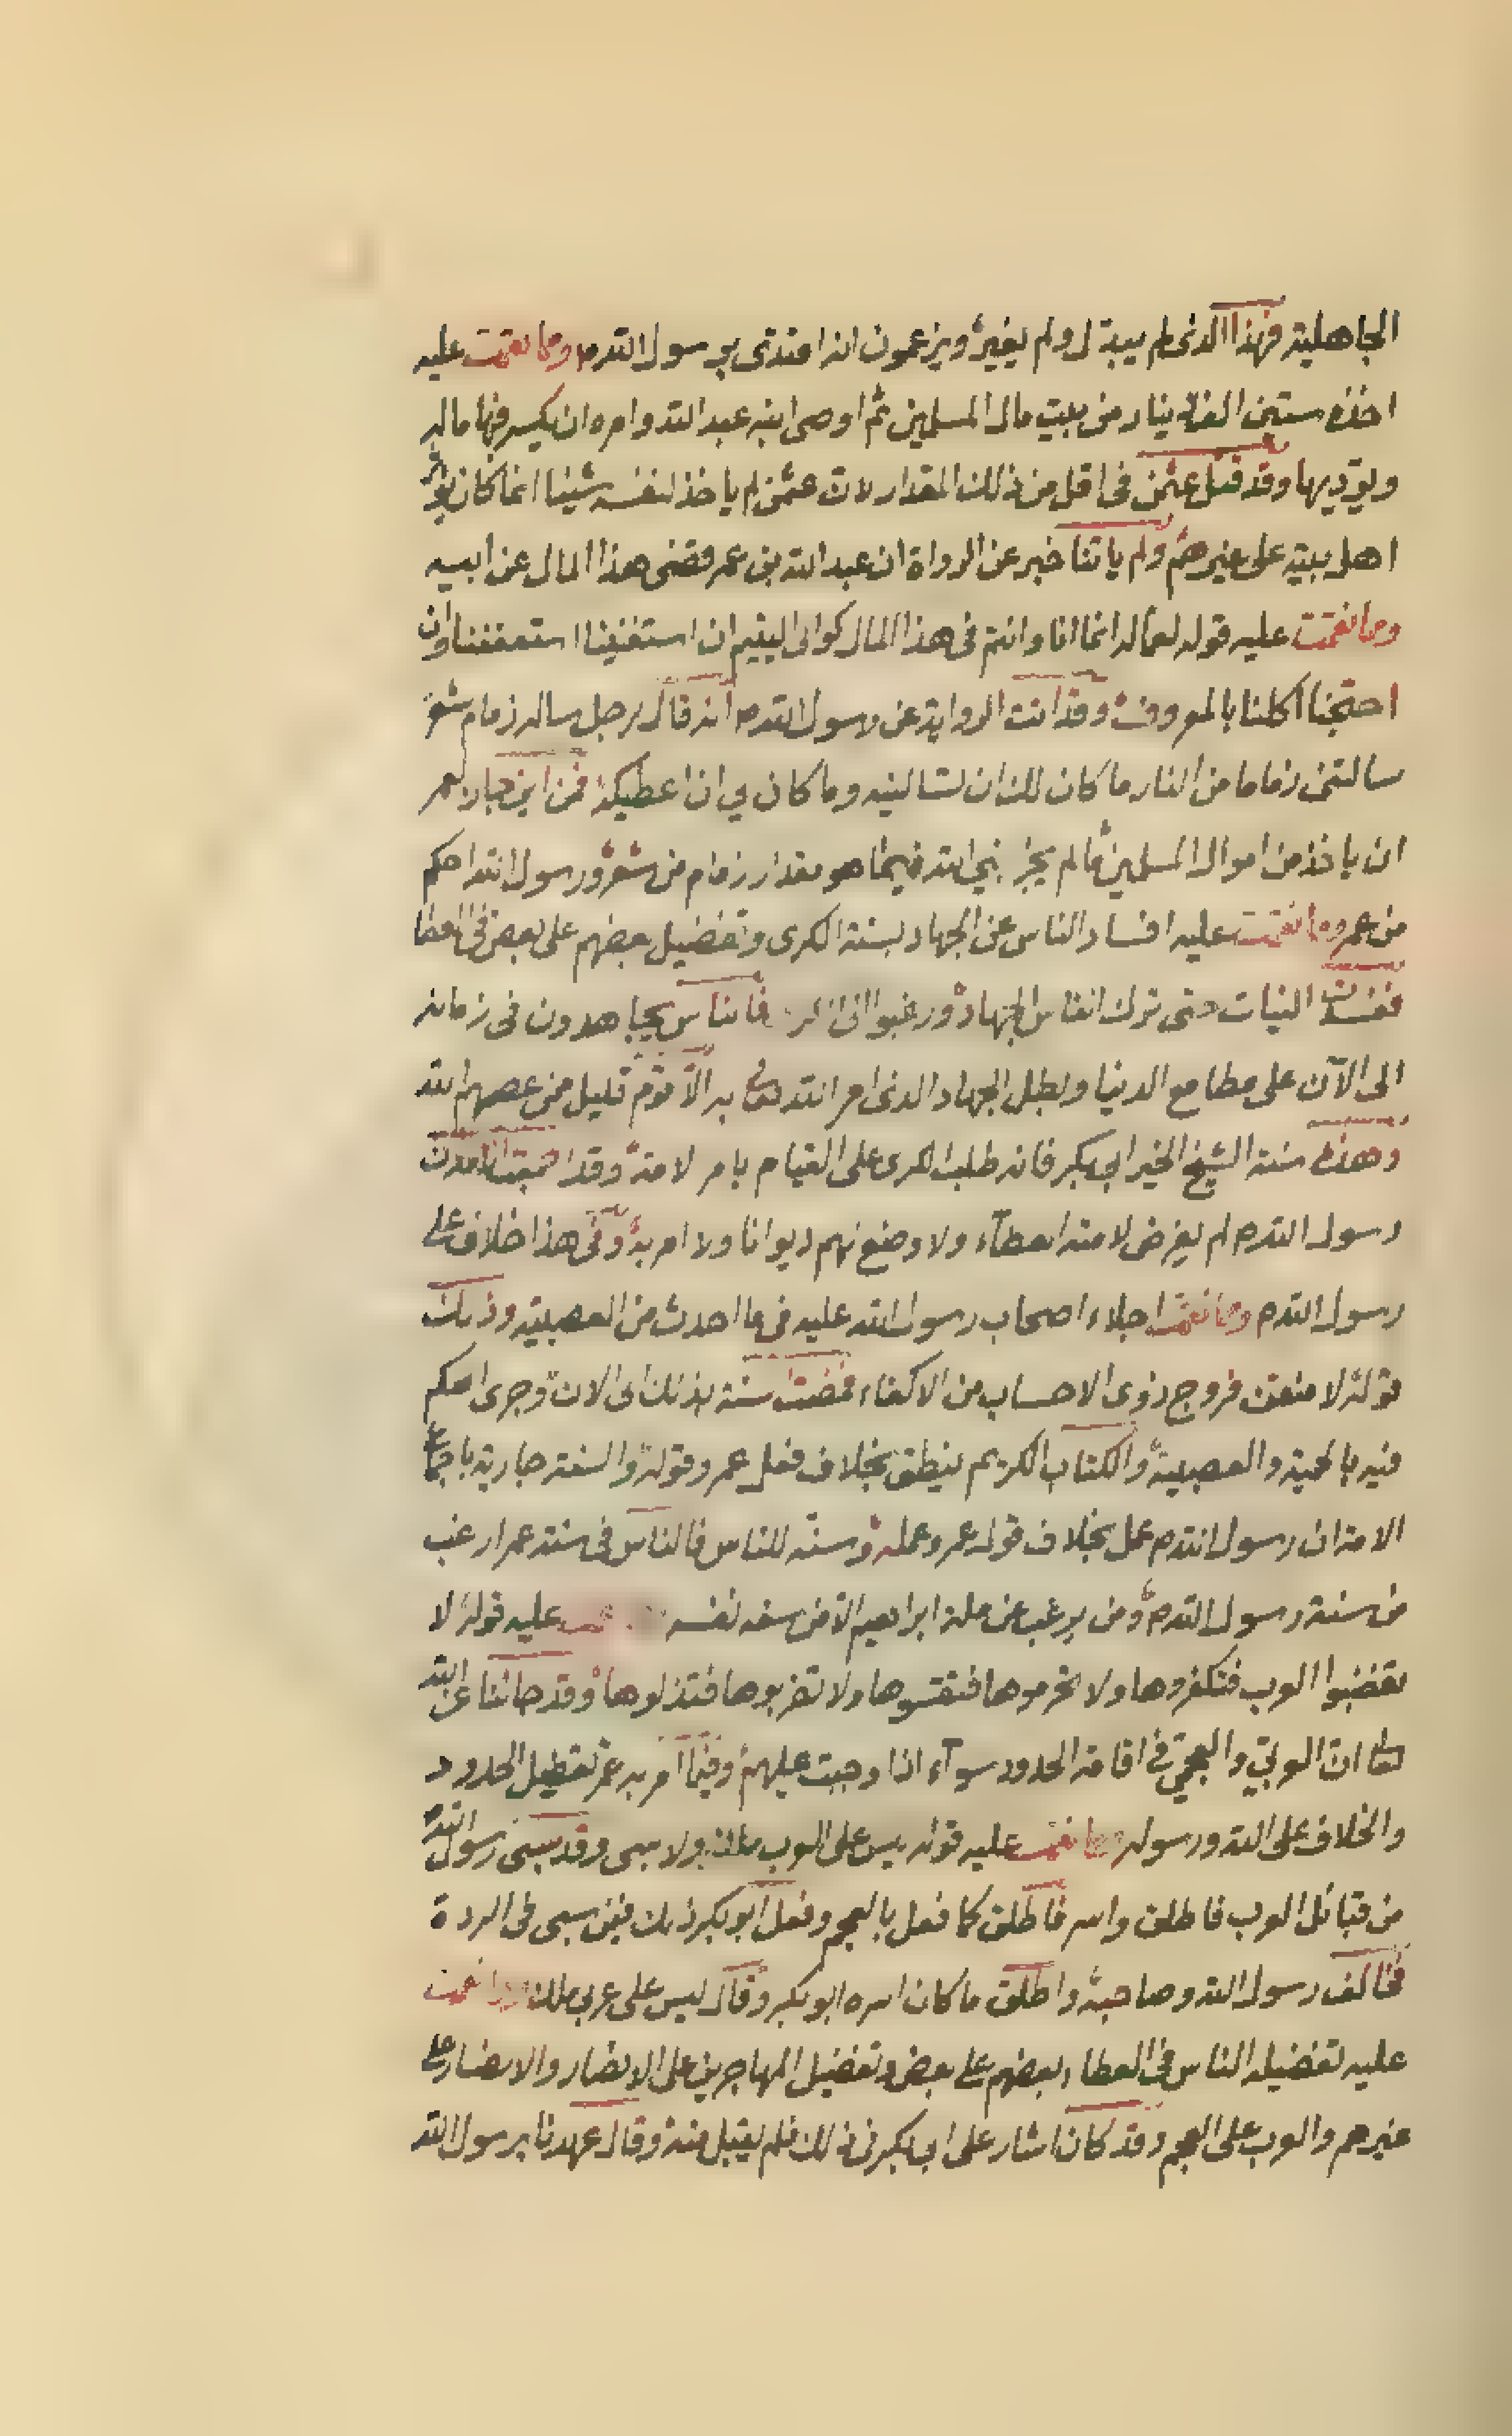 الجاهلية فهذا الذى لم يبدل ولم يغير ويزعمون انه اهتدى برسول الله ص ومما نقمت عليه
اخذه ستين الف دينار من بيت مال المسلمين ثم اوصى ابنه عبد الله وامره ان يكسر فيها ماله
ويؤديها وقد قتل عثمن فى اقل من ذلك المقدار لان عثمن لم ياخذ لنفسه شيئا انما كان يؤثر
اهل بيته على غيرهم ولم ياتنا خبر عن الرواة ان عبد الله بن عمر قضى هذا المال عن ابيه
ومما نقمت عليه قوله لعماله انما انا وانتم فى هذا المال كوالى اليتيم ان استغنينا استعففنا وان
احتجنا اكلنا بالمعروف وقد اتت الرواية عن رسول الله ص انه قال لرجل ساله زمام شعر
سالتنى زماما من النار ما كان لك ان تسالنيه وما كان لي ان اعطيكه فمن اين جاز لعمر
ان ياخذ من اموال المسلمين ما لم يجز نبي الله فيما هو مقدار زمام من شعر ورسول الله احكم
من عمر ومما نقمت عليه افساد الناس عن الجهاد بسنة الكرى وتفضيل بعضهم على بعض فى العطا
ففسدت النيات حتى ترك الناس الجهاد ورغبوا فى الكرى فالناس يجاهدون فى زمانه
الى الآن على مطامع الدنيا وبطل الجهاد الذى امر الله به الا قوم قليل ممن عصمهم الله
وهذه سنة الشيخ الخير ابى بكر فانه طلب الكرى على القيام بامر الامة وقد اجتمعت الامة ان
رسول الله ص لم يفرض لامته العطآء ولا وضع لهم ديوانا ولا امر به وفى هذا خلاف على
رسول الله ص ومما نقمت اجلاء اصحاب رسول الله عليه فى ما احدث من العصبية وذلك
قوله لا منعن فروج ذوى الاحساب من الاكفاء فمضت سنة بذلك الى الان وجرى الحكم
فيه بالحمية والعصبية والكتاب الكريم ينطق بخلاف فعل عمر وقوله والسنة جارية باجماع
الامة ان رسول الله ص عمل بخلاف قول عمر وعمله وسنه للناس فالناس فى سنة عمر ارغب
من سنة رسول الله ص ومن يرغب عن ملة ابراهيم الا من سفه نفسه عليه قوله لا
تغضبوا العرب فتكفروها ولا تحرموها فتفتسوها ولا تضربوها فتذلوها وقد جائنا عن الله
تعا ان العربى والعجمى فى اقامة الحدود سوآء اذا وجبت عليهم وفيما امر به عمر تعطيل الحدود
والخلاف على الله ورسوله ومما نقمت عليه قوله ليس على العرب ملك ولا سبى وقد سبى رسول الله ص
من قبائل العرب فاطلق واسر فاطلق كما فعل بالعجم وفعل ابو بكر ذلك فيمن سبى فى الردة
فخالف رسول الله وصاحبه واطلق ما كان اسره ابو بكر وقال ليس على عربى ملك ومما نقمت
عليه تفضيله الناس فى العطاء بعضهم على بعض وتفضيل المهاجرين على الانصار والانصار على
غيرهم والعرب على العجم وقد كان اشار على ابى بكر فى ذلك فلم يقبل منه وقال عهدنا برسول الله